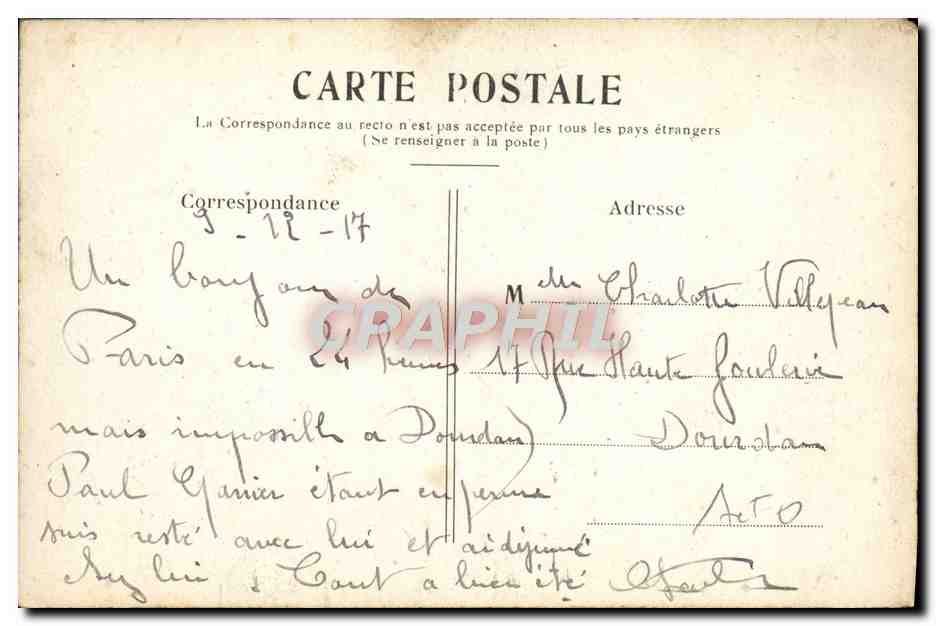 CARTE POSTALE
La Correspondance au recto n'est pas acceptée par tous les pays étrangers
(Se renseigner à la poste)
Correspondance
9-12-17
Un bonjour de
Paris en 24 heures
mais impossible a Dourdan
Paul Garnier étant en perme
suis resté avec lui et ai déjeuné
chez lui, Tout a bien été
Adresse
Melle Charlotte Villejean
17 Rue Haute Foulerie
Dourdan
S et O
CRAPHIL